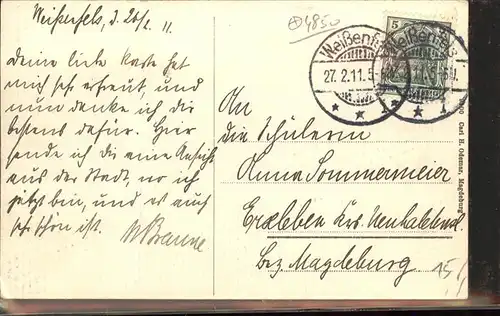 Weißenfels, d. 26/2. 11.
Deine liebe Karte hat
mich sehr erfreut, und
nun danke ich dir
bestens dafür. Hier
sende ich dir eine Ansicht
aus der Stadt, wo ich
jetzt bin, und es auch
sehr schön ist.
4850
5
Weißenfels
27.2.11.5-6N.
An
die Schülerin
Anna Sommermeier
Erxleben Krs. Neuhaldensl.
bez. Magdeburg
15/
Carl H. Odemar, Magdeburg